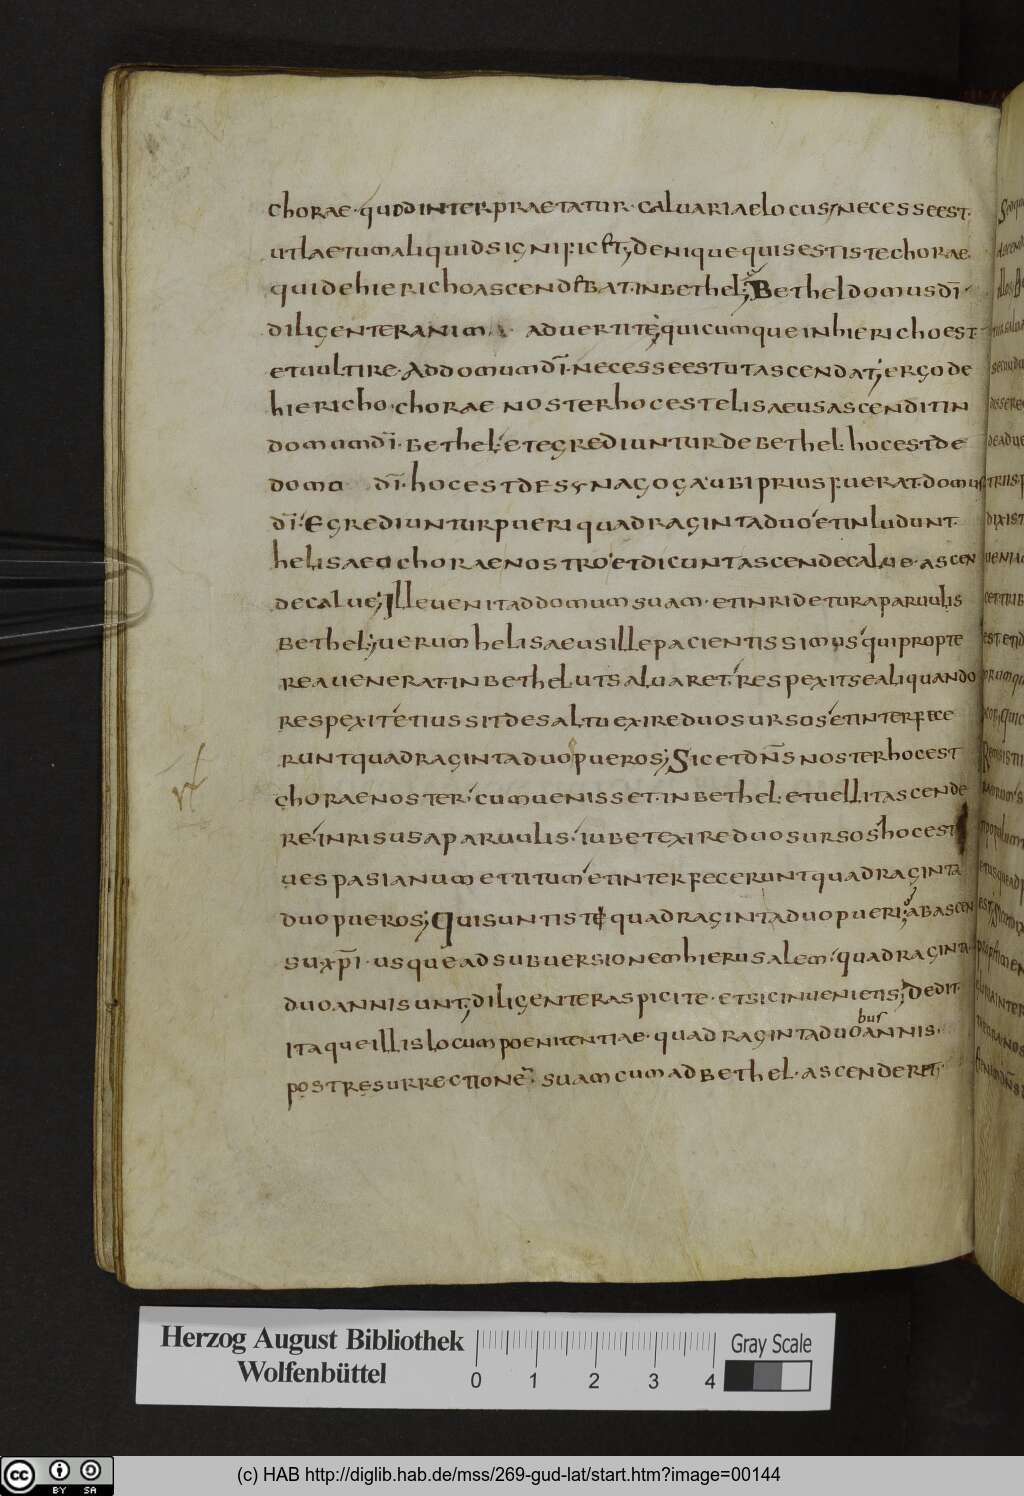 chorae· quod interpraetatur· calvariae locus necesse est·
ut laetum aliquid significet; denique quis est iste chorae
qui de hiericho ascendebat· in bethel; Bethel domus dī·
diligenter anim advertite; quicumque in hiericho est·
et vult ire· Ad domum dī· necesse est ut ascendat; ergo de
hiericho· chorae noster hoc est elisaeus ascendit in
domum dī· bethel· et egrediuntur de bethel· hoc est de
domo dī· hoc est de synagoga· ubi prius fuerat· domus
dī· Egrediuntur pueri quadraginta duo· et inludunt·
helisaeo chorae nostro· et dicunt ascende calve· ascen
de calve; Ille venit ad domum suam· et inridetur a parvulis
bethel; verum helisaeus ille pacientissimus· qui propte
rea venerat· in bethel ut salvaret· respexit se aliquando
respexit· et iussit de saltu exire duos ursos· et interfece
runt quadraginta duo pueros; Sic et dn̄s noster hoc est
chorae noster· cum venisset· in bethel· et vellit ascende
re· inrisus a parvulis· iubet exire duos ursos· hoc est
vespasianum et titum· et interfecerunt quadraginta
duo pueros; Qui sunt isti quadraginta duo pueri; ab ascen
su xp̄i· usque ad subversionem hierusalem· quadraginta·
duo anni sunt; diligenter aspicite· et sic invenietis; Dedit·
itaque illis locum poenitentiae· quadraginta duobus annis·
post resurrectionē suam cum ad bethel· ascenderet·
Herzog August Bibliothek
Wolfenbüttel
0 1 2 3 4
Gray Scale
cc BY SA
(c) HAB http://diglib.hab.de/mss/269-gud-lat/start.htm?image=00144